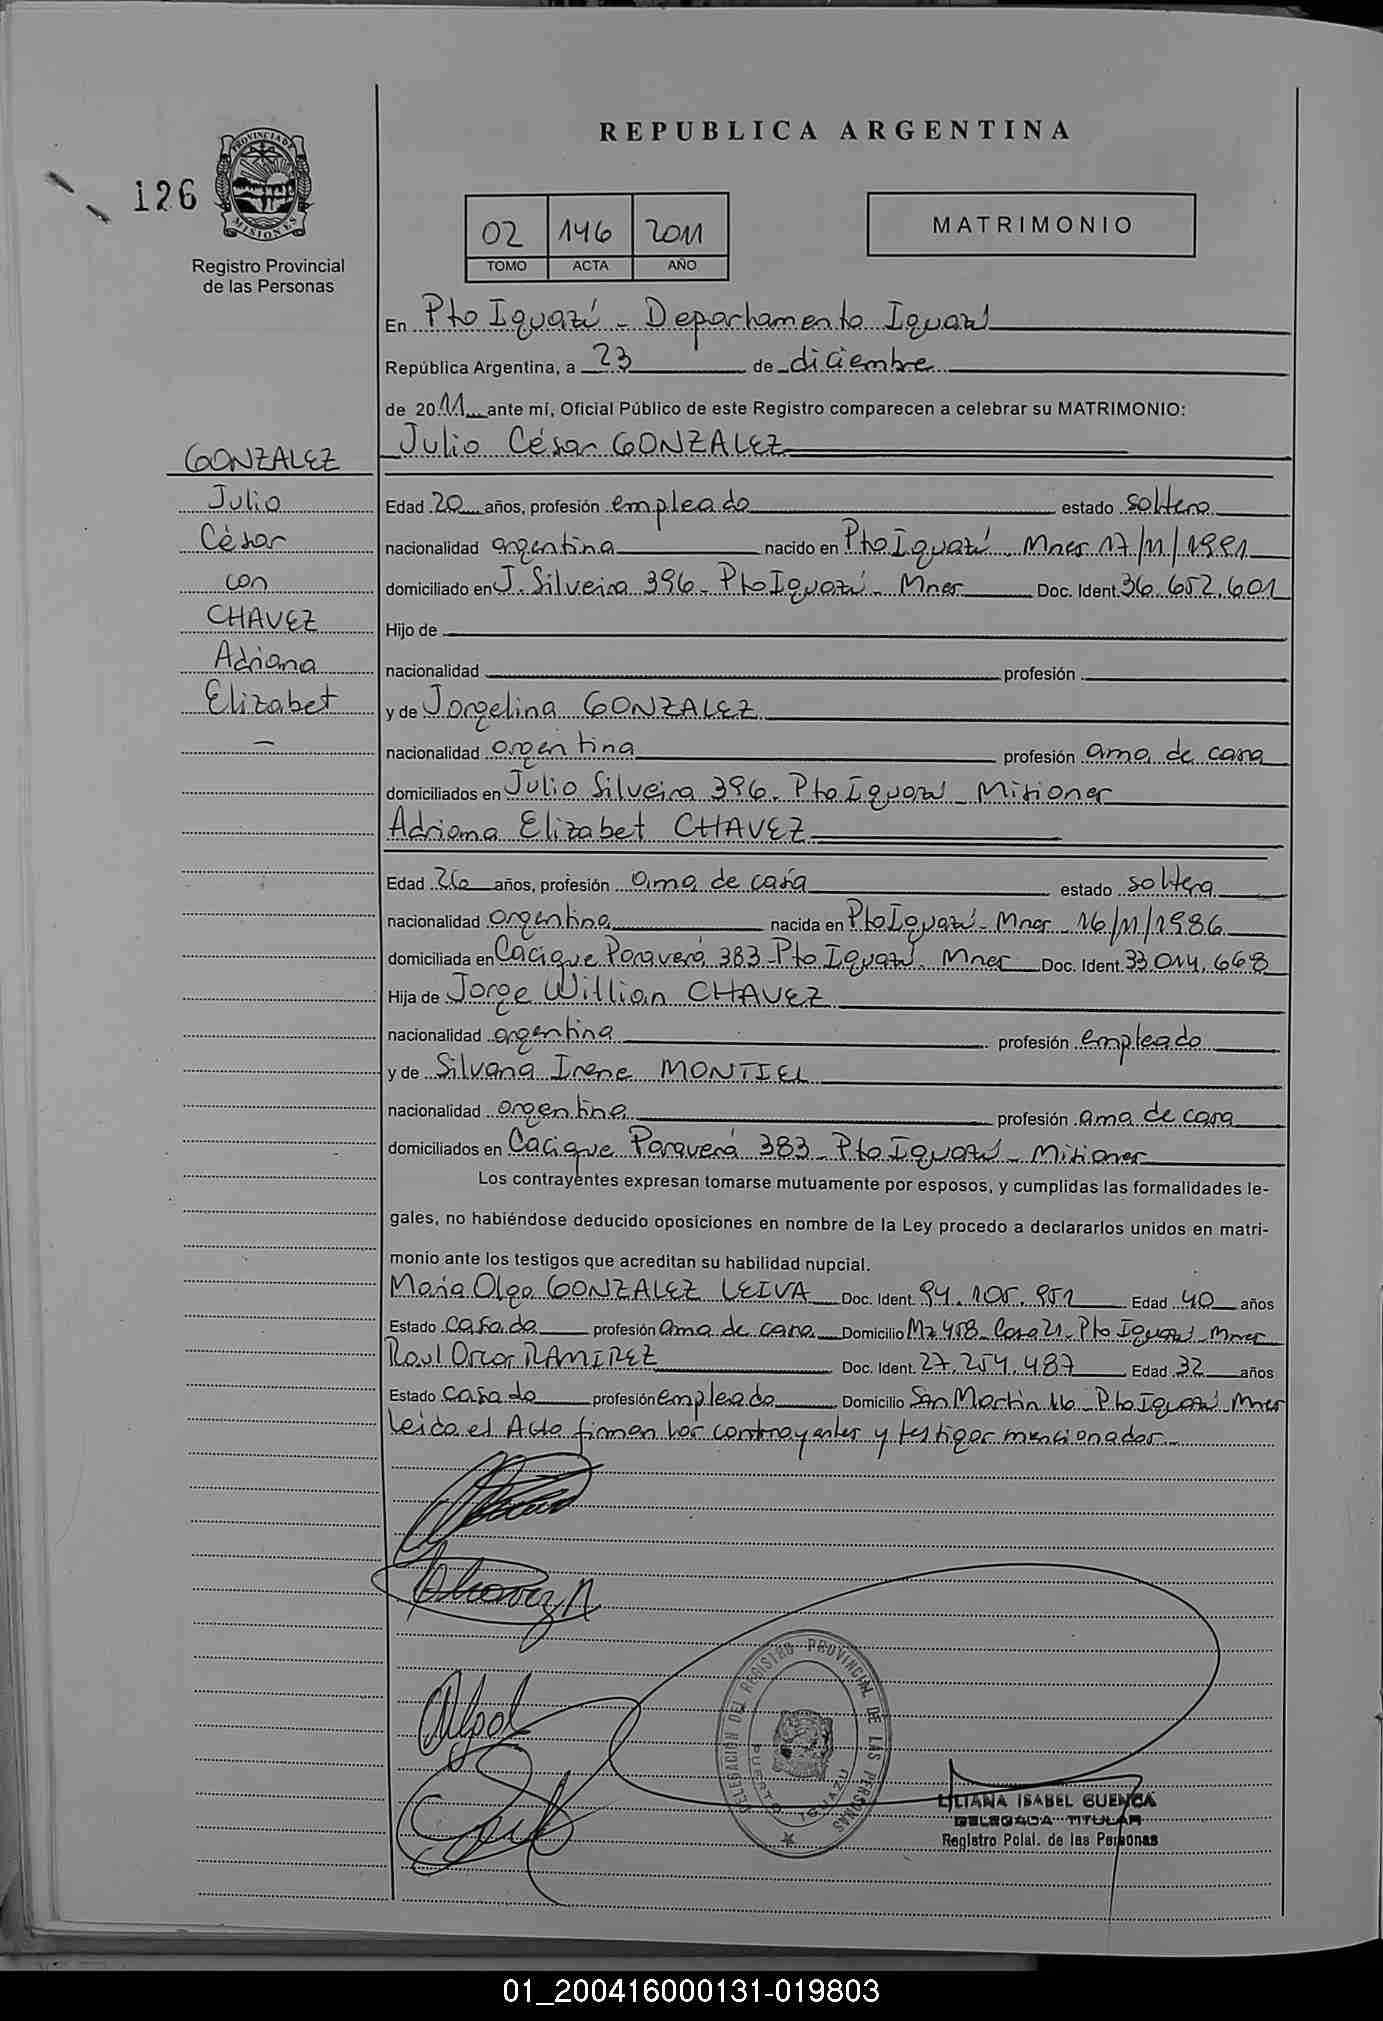 REPUBLICA ARGENTINA
126
PROVINCIA DE MISIONES
Registro Provincial
de las Personas
02 146 2011
TOMO ACTA AÑO
MATRIMONIO
En Pto Iguazú - Departamento Iguazú
República Argentina, a 23 de diciembre
de 2011 ante mí, Oficial Público de este Registro comparecen a celebrar su MATRIMONIO:
Julio César GONZALEZ
GONZALEZ
Julio
César
con
CHAVEZ
Adriana
Elizabet
Edad 20 años, profesión empleado estado soltero
nacionalidad argentina nacido en Pto Iguazú - Mnes 17/11/1991
domiciliado en J. Silveira 396 - Pto Iguazú - Mnes Doc. Ident. 36.652.601
Hijo de
nacionalidad profesión
y de Jorgelina GONZALEZ
nacionalidad argentina profesión ama de casa
domiciliados en Julio Silveira 396 - Pto Iguazú - Misiones
Adriana Elizabet CHAVEZ
Edad 26 años, profesión ama de casa estado soltera
nacionalidad argentina nacida en Pto Iguazú - Mnes 16/11/1986
domiciliada en Cacique Paraverá 383 - Pto Iguazú - Mnes Doc. Ident. 33.014.668
Hija de Jorge Willian CHAVEZ
nacionalidad argentina profesión empleado
y de Silvana Irene MONTIEL
nacionalidad argentina profesión ama de casa
domiciliados en Cacique Paraverá 383 - Pto Iguazú - Misiones
Los contrayentes expresan tomarse mutuamente por esposos, y cumplidas las formalidades le-
gales, no habiéndose deducido oposiciones en nombre de la Ley procedo a declararlos unidos en matri-
monio ante los testigos que acreditan su habilidad nupcial.
María Olga GONZALEZ LEIVA Doc. Ident. 94.105.951 Edad 40 años
Estado casada profesión ama de casa Domicilio Mz 458 - Casa 21 - Pto Iguazú - Mnes
Raul Oscar RAMIREZ Doc. Ident. 27.254.487 Edad 32 años
Estado casado profesión empleado Domicilio San Martín - Pto Iguazú - Mnes
Leida el Acta firman los contrayentes y testigos mencionados
Chavez A
DELEGACIÓN DEL REGISTRO PROVINCIAL DE LAS PERSONAS
PUERTO IGUAZU
LILIANA ISABEL CUENCA
DELEGADA TITULAR
Registro Pcial. de las Personas
01_200416000131-019803